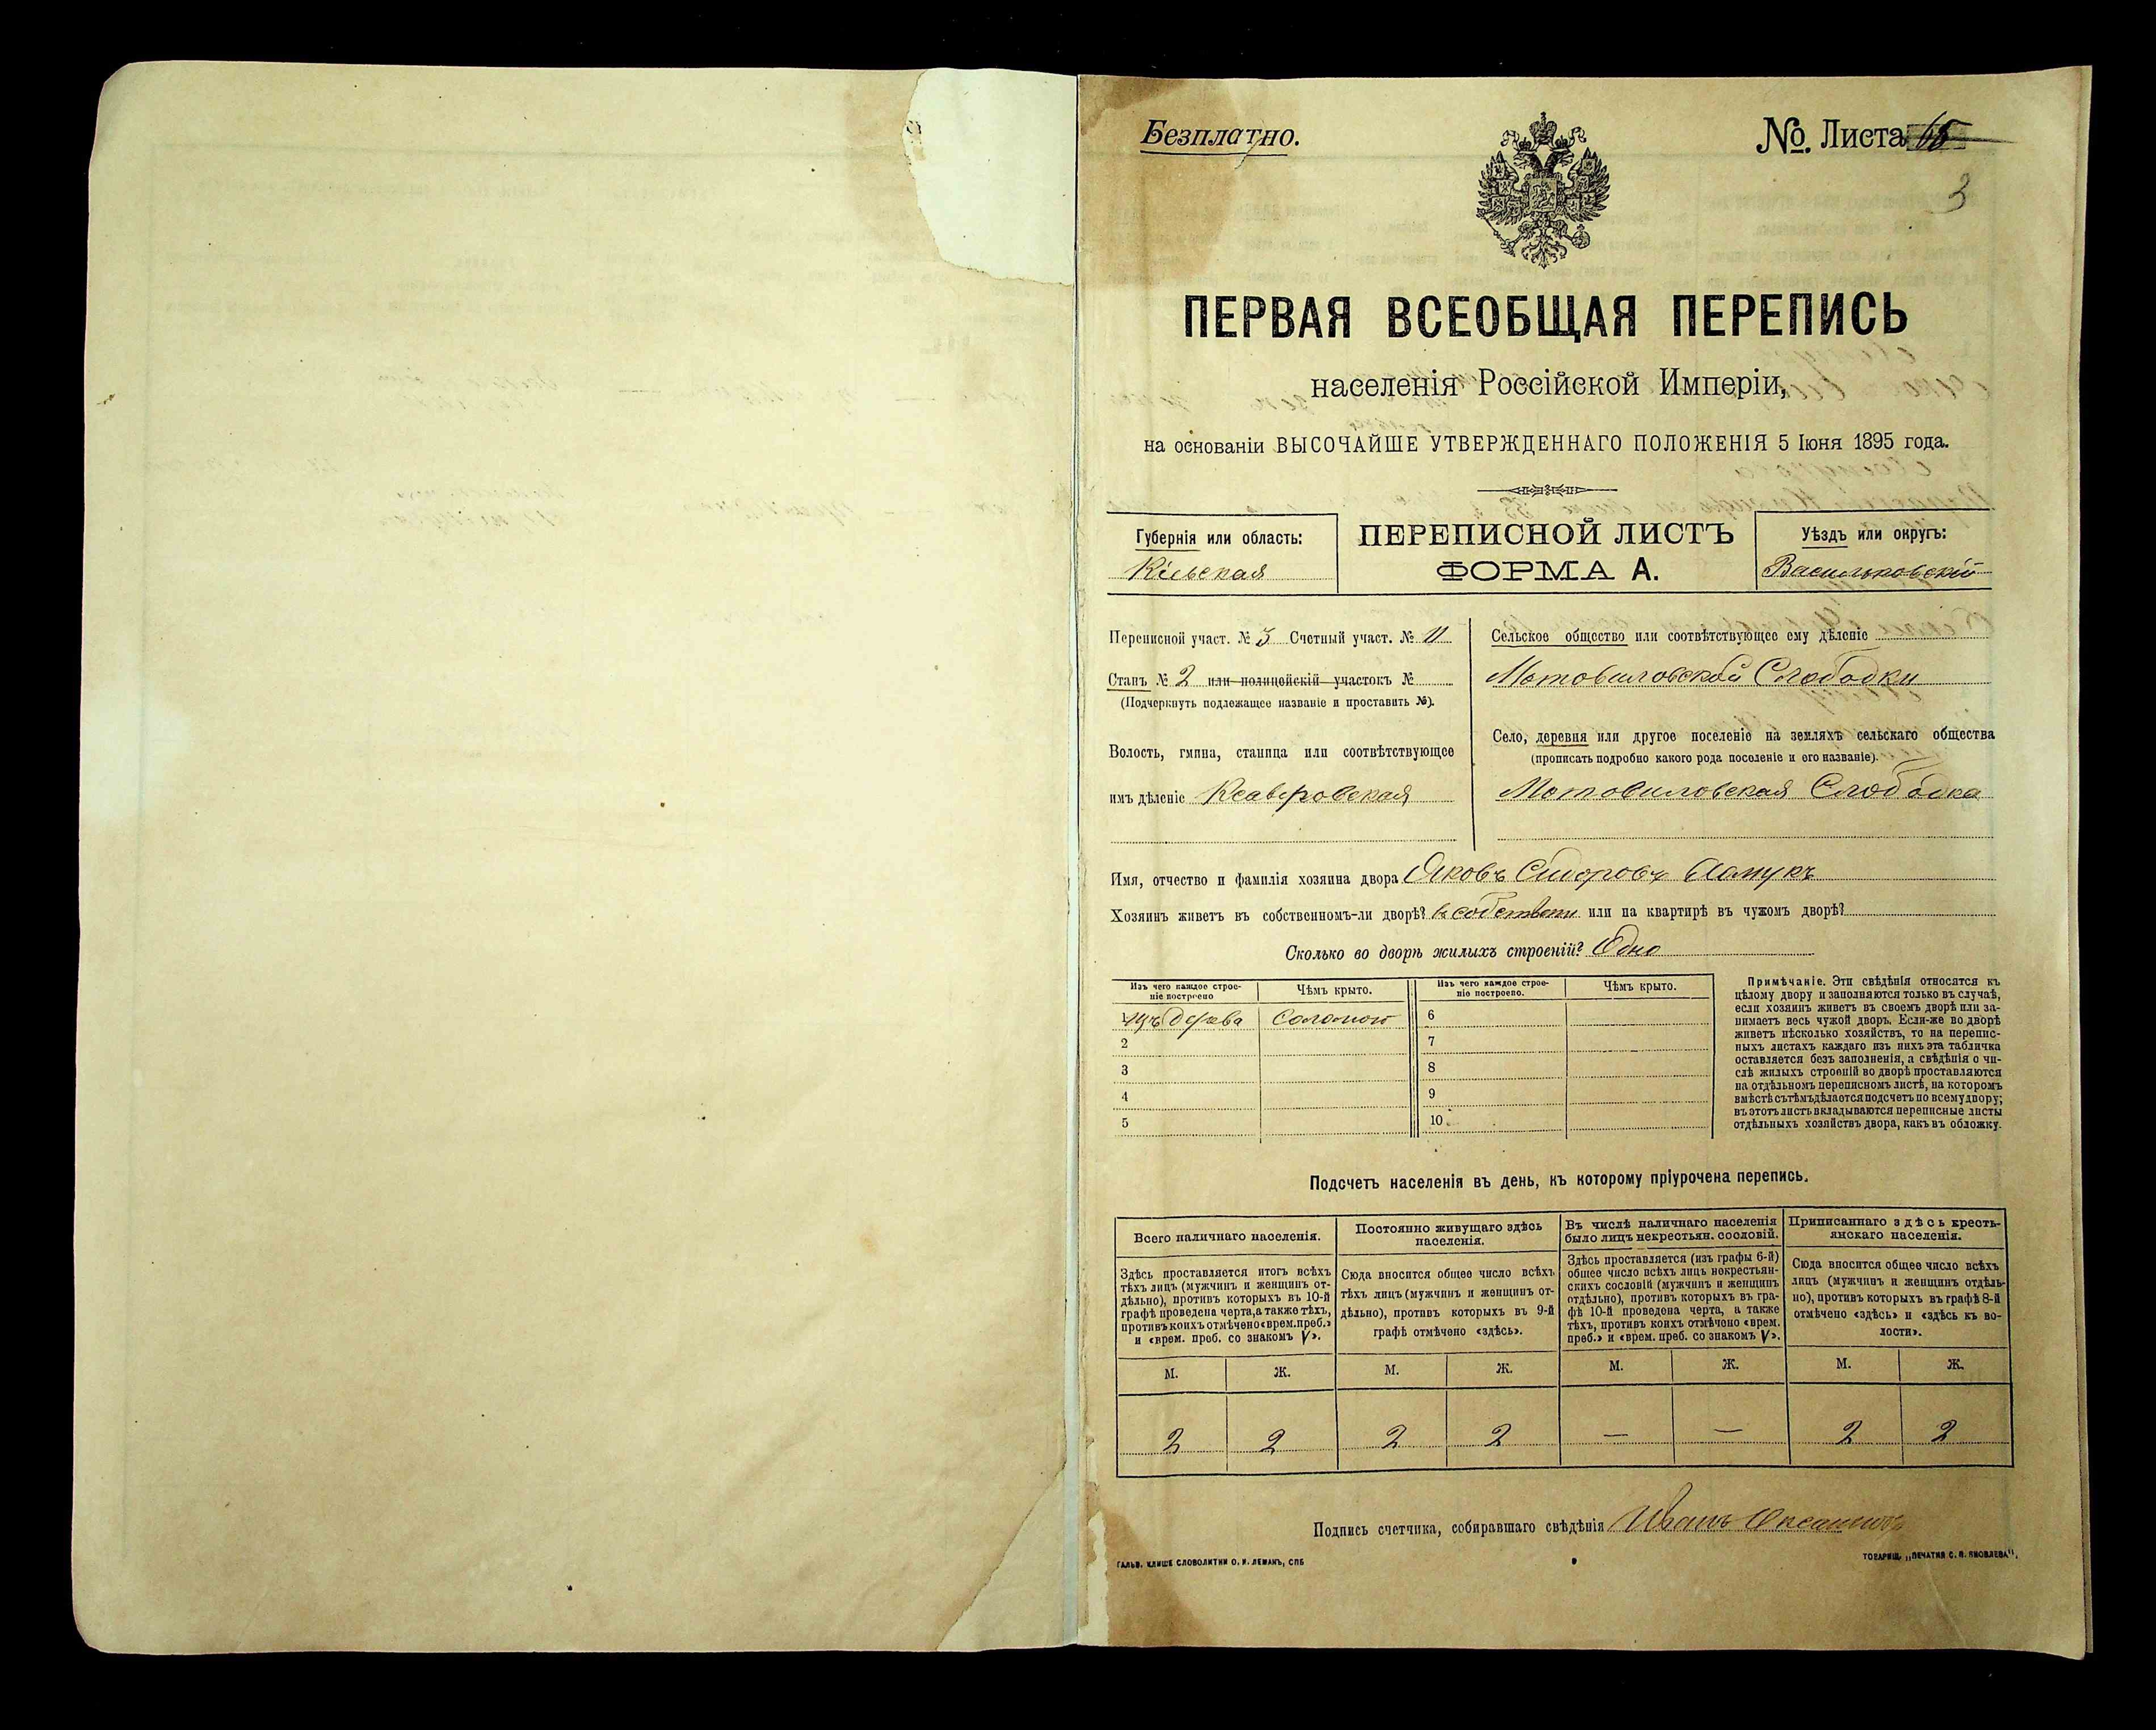 Безплатно.
№ Листа 65
3
ПЕРВАЯ ВСЕОБЩАЯ ПЕРЕПИСЬ
населенія Россійской Имперіи,
на основаніи ВЫСОЧАЙШЕ УТВЕРЖДЕННАГО ПОЛОЖЕНІЯ 5 Іюня 1895 года.
Губернія или область:
Кіевская
ПЕРЕПИСНОЙ ЛИСТЪ
ФОРМА А.
Уѣздъ или округъ:
Васильковскій
Переписной участ. № 3 Счетный участ. № 11
Станъ № 2 или полицейскій участокъ №
(Подчеркнуть подлежащее названіе и проставить №).
Волость, гмина, станица или соотвѣтствующее
имъ дѣленіе Ксаверовская
Сельское общество или соотвѣтствующее ему дѣленіе
Мотовиловской Слободки
Село, деревня или другое поселеніе на земляхъ сельскаго общества
(прописать подробно какого рода поселеніе и его названіе).
Мотовиловская Слободка
Имя, отчество и фамилія хозяина двора Яковъ Сидоровъ
Хозяинъ живетъ въ собственномъ-ли дворѣ? въ собствен или на квартирѣ въ чужомъ дворѣ?
Сколько во дворѣ жилыхъ строеній? Одно
Изъ чего каждое строе-
ніе построено
Чѣмъ крыто.
Изъ чего каждое строе-
ніе построено.
Чѣмъ крыто.
1 изъ дерева Соломою 6
2 7
3 8
4 9
5 10
Примѣчаніе. Эти свѣдѣнія относятся къ
цѣлому двору и заполняются только въ случаѣ,
если хозяинъ живетъ въ своемъ дворѣ или за-
нимаетъ весь чужой дворъ. Если-же во дворѣ
живетъ нѣсколько хозяйствъ, то на перепис-
ныхъ листахъ каждаго изъ нихъ эта табличка
оставляется безъ заполненія, а свѣдѣнія о чи-
слѣ жилыхъ строеній во дворѣ проставляются
на отдѣльномъ переписномъ листѣ, на которомъ
вмѣстѣ съ тѣмъ дѣлается подсчетъ по всему двору;
въ этотъ листъ вкладываются переписные листы
отдѣльныхъ хозяйствъ двора, какъ въ обложку.
Подсчетъ населенія въ день, къ которому пріурочена перепись.
Всего наличнаго населенія.
Постоянно живущаго здѣсь
населенія.
Въ числѣ наличнаго населенія
было лицъ некрестьян. сословій.
Приписаннаго здѣсь кресть-
янскаго населенія.
Здѣсь проставляется итогъ всѣхъ
тѣхъ лицъ (мужчинъ и женщинъ от-
дѣльно), противъ которыхъ въ 10-й
графѣ проведена черта, а также тѣхъ,
противъ коихъ отмѣчено «врем. преб.»
и «врем. преб. со знакомъ V».
Сюда вносится общее число всѣхъ
тѣхъ лицъ (мужчинъ и женщинъ от-
дѣльно), противъ которыхъ въ 9-й
графѣ отмѣчено «здѣсь».
Здѣсь проставляется (изъ графы 6-й)
общее число всѣхъ лицъ некрестьян-
скихъ сословій (мужчинъ и женщинъ
отдѣльно), противъ которыхъ въ гра-
фѣ 10-й проведена черта, а также
тѣхъ, противъ коихъ отмѣчено «врем.
преб.» и «врем. преб. со знакомъ V».
Сюда вносится общее число всѣхъ
лицъ (мужчинъ и женщинъ отдѣль-
но), противъ которыхъ въ графѣ 8-й
отмѣчено «здѣсь» и «здѣсь къ во-
лости».
М. Ж. М. Ж. М. Ж. М. Ж.
2 2 2 2 — — 2 2
Подпись счетчика, собиравшаго свѣдѣнія Иванъ
ГАЛЬВ. КЛИШЕ СЛОВОЛИТНИ О. И. ЛЕМАНЪ, СПБ
ТОВАРИЩ. „ПЕЧАТНЯ С. П. ЯКОВЛЕВА".